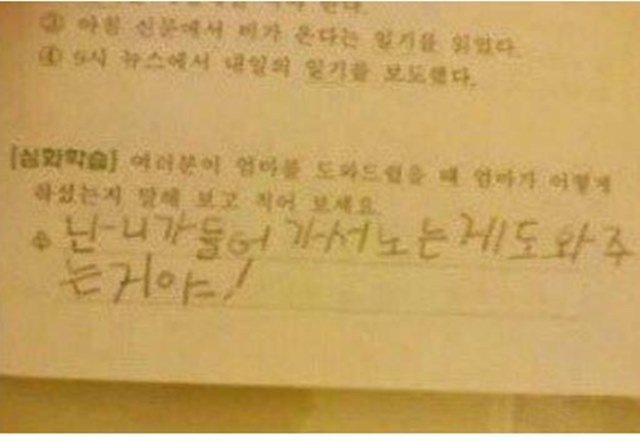 ③ 아침 신문에서 비가 온다는 일기를 읽었다.
④ 9시 뉴스에서 내일의 일기를 보도했다.
[심화학습] 여러분이 엄마를 도와드렸을 때 엄마가 어떻게
하셨는지 말해 보고 적어 보세요.
난 니가 들어가서 노는게 도와주
는거야!